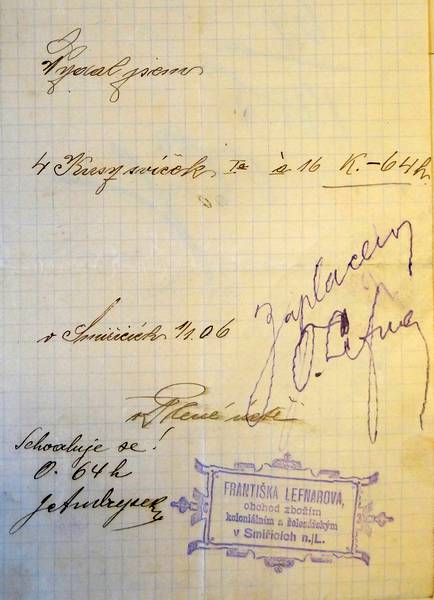 Vydal jsem
4 Kusy svíček Ia à 16 K.-64h
v Smiřicích 1/1 06
Zaplaceno
Schvaluje se!
O. 64 h
J Andrejsek
FRANTIŠKA LEFNAROVÁ,
obchod zbožím
koloniálním a železářským
v Smiřicích n./L.